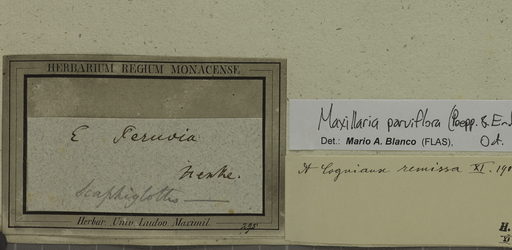 HERBARIUM REGIUM MONACENSE
E Peruvia
Henke.
Scaphiglottis
Herbar. Univ. Ludov. Maximil.
Maxillaria parviflora (Poepp. & E
Det.: Mario A. Blanco (FLAS),
A Cogniaux remissa XI. 190
H.